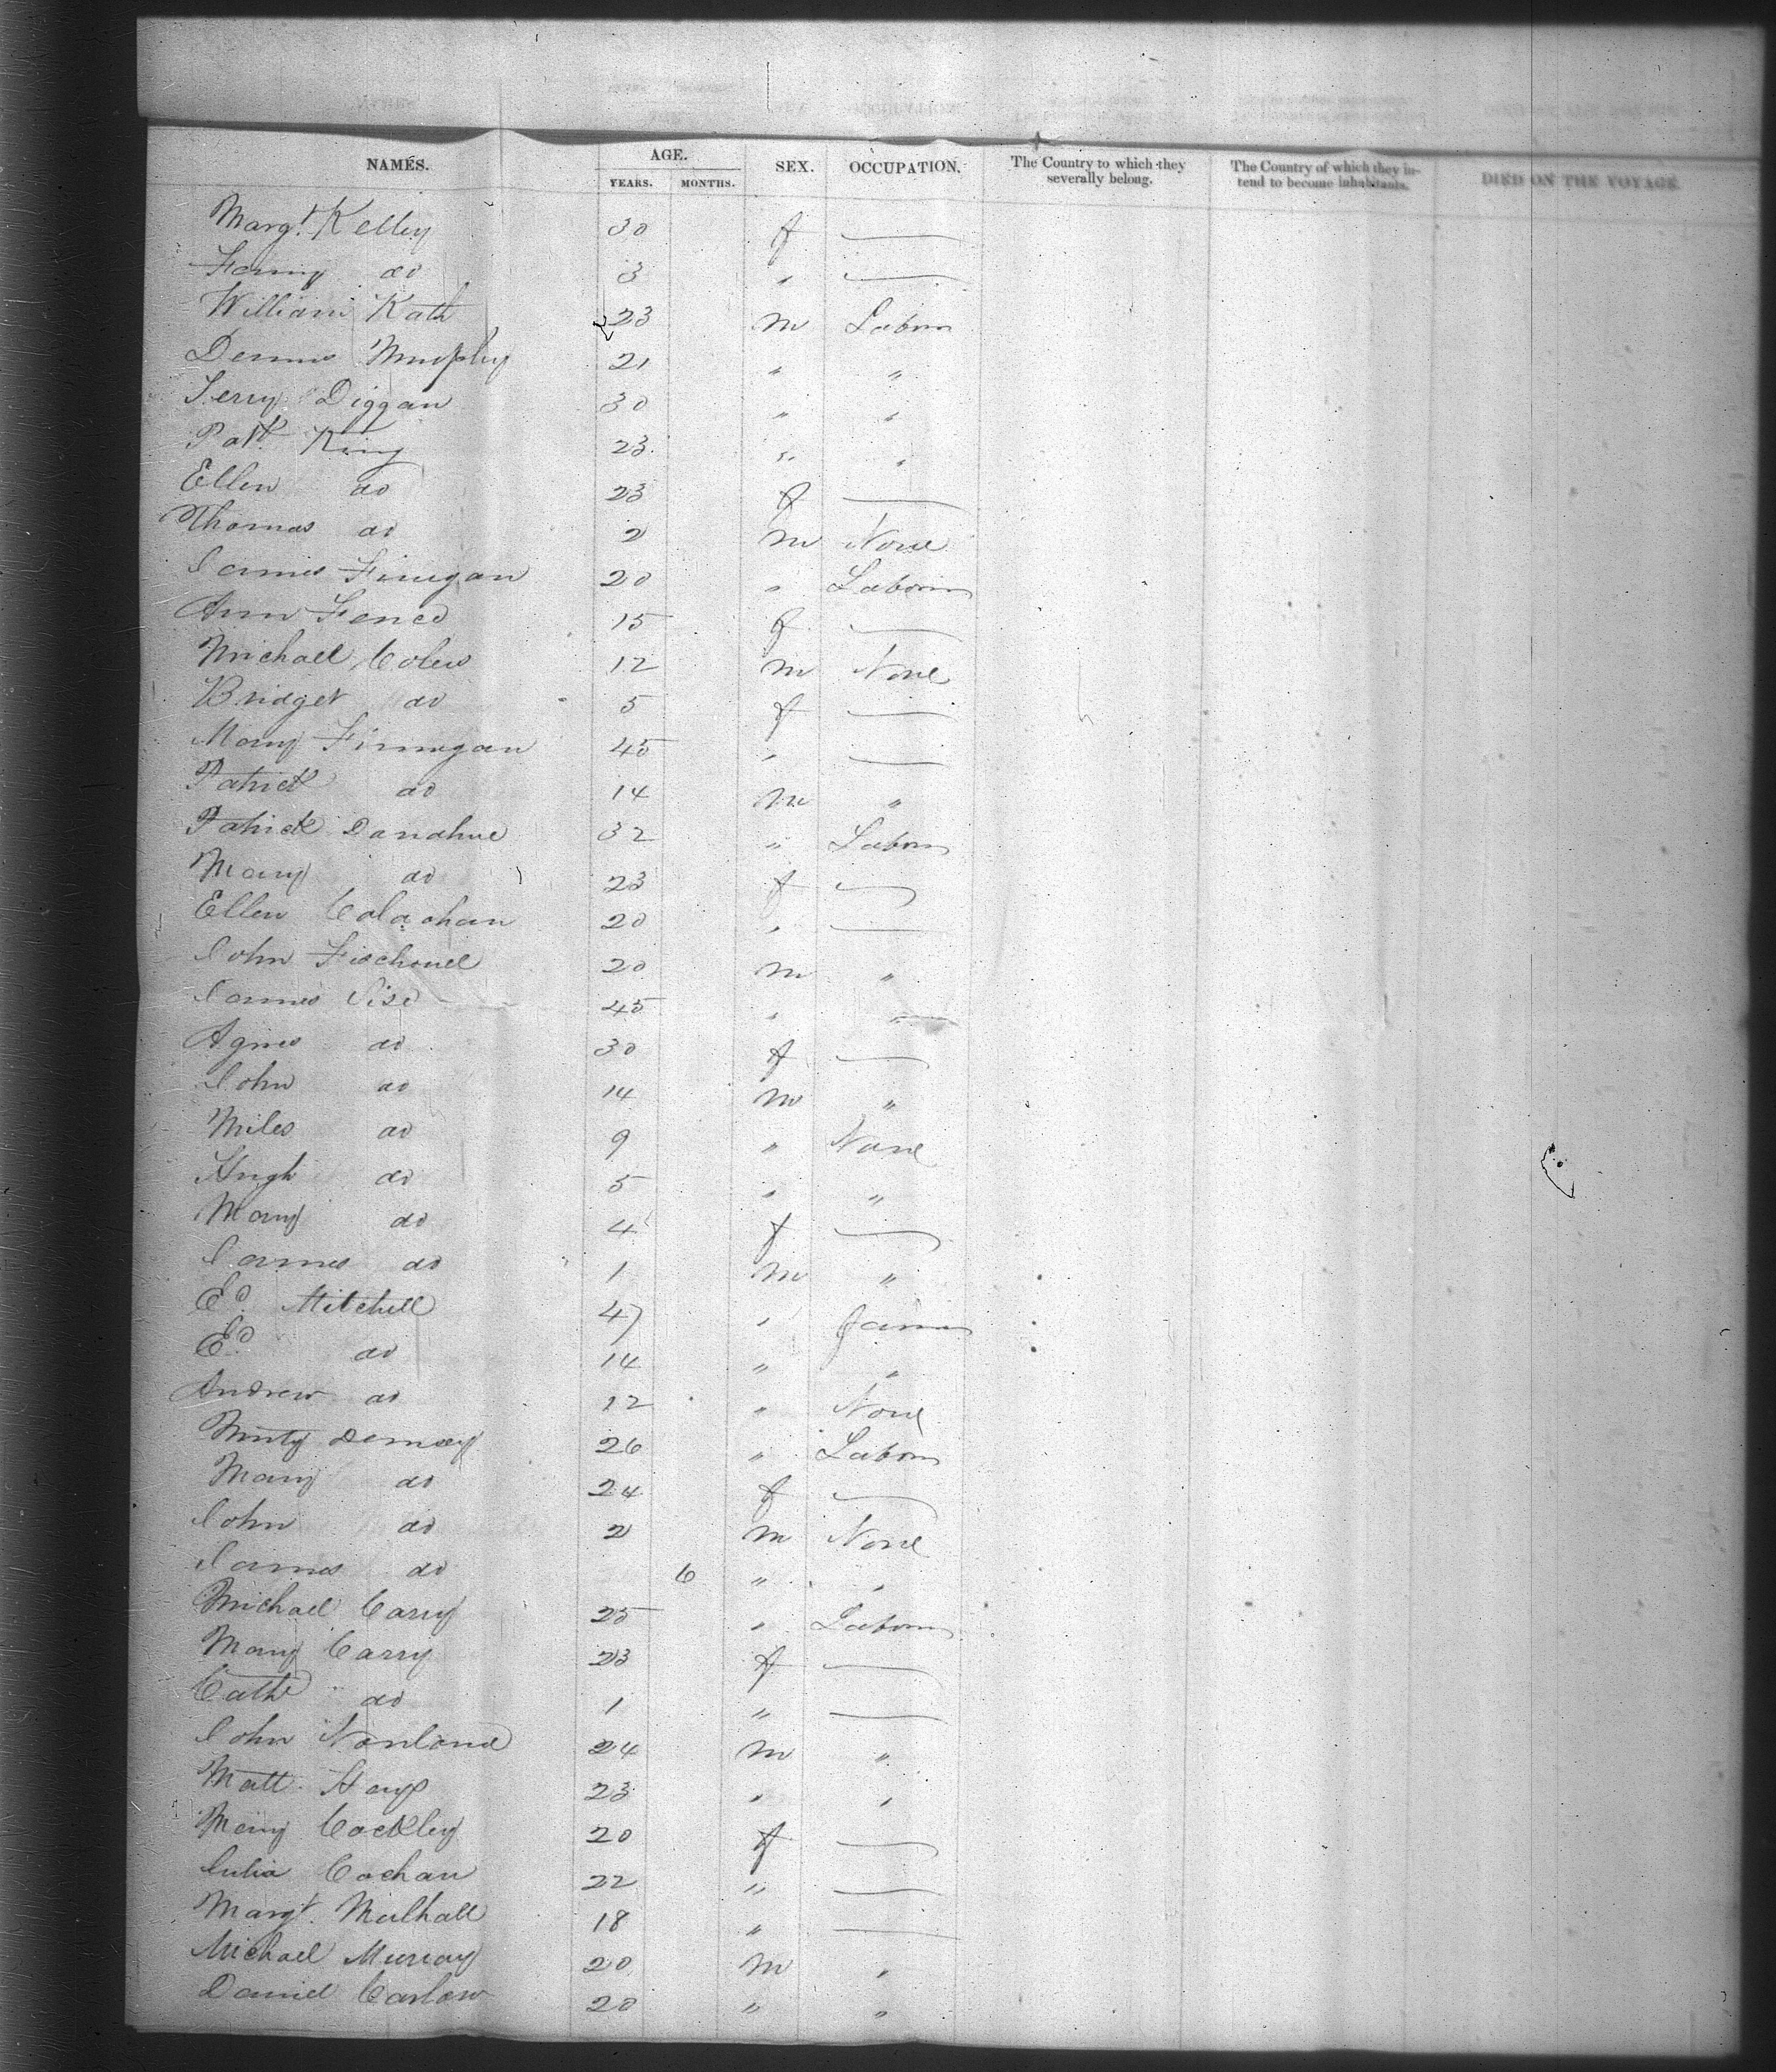 NAMES. AGE. YEARS. MONTHS. SEX. OCCUPATION. The Country to which they severally belong. The Country of which they intend to become inhabitants. DIED ON THE VOYAGE
Margt. Kelley 30 f —
Fanny do 3 " —
William Kath 23 m Labor
Dennis Murphy 21 " "
Jerry Diggan 30 " "
Patk. King 23 " "
Ellen do 23 f —
Thomas do 2 m None
James Finegan 20 " Labor
Ann 15 f —
Michael Coles 12 m None
Bridget do 5 f —
Mary Finnegan 45 " —
Patrick do 14 m "
Patrick Donahue 32 " Labor
Mary do 23 f —
Ellen Colaahan 20 " —
John 20 m "
James Sise 45 " "
Agnes do 30 f —
John do 14 m "
Miles do 9 " None
Hugh do 5 " "
Mary do 4 f —
James do 1 m "
Ed. Mitchell 47 " Farmer
Ed. do 14 " "
Andrew do 12 " None
26 " Labor
Mary do 24 f —
John do 2 m None
James do 6 " "
Michael Carry 25 " Labor
Mary Carry 23 f —
Cath do 1 " —
John Nonland 24 m "
Matt. Hays 23 " "
Mary Cockley 20 f —
Julia Cochan 22 " —
Margt. Mulhall 18 " —
Michael Murray 20 m "
Daniel Carlow 20 " "